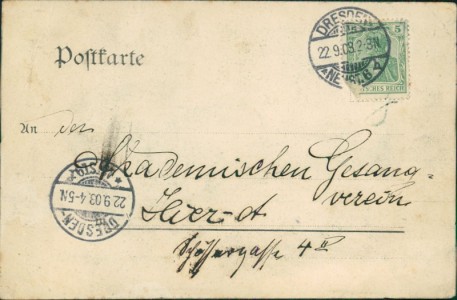 DRESDEN
22.9.03. 2-3N.
* NEUST. 6 *
5
DEUTSCHES REICH
Postkarte
An den
Akademischen Gesang-
verein
Hier-A
Schössergasse 4 II
DRESDEN
22.9.03.4-5N.